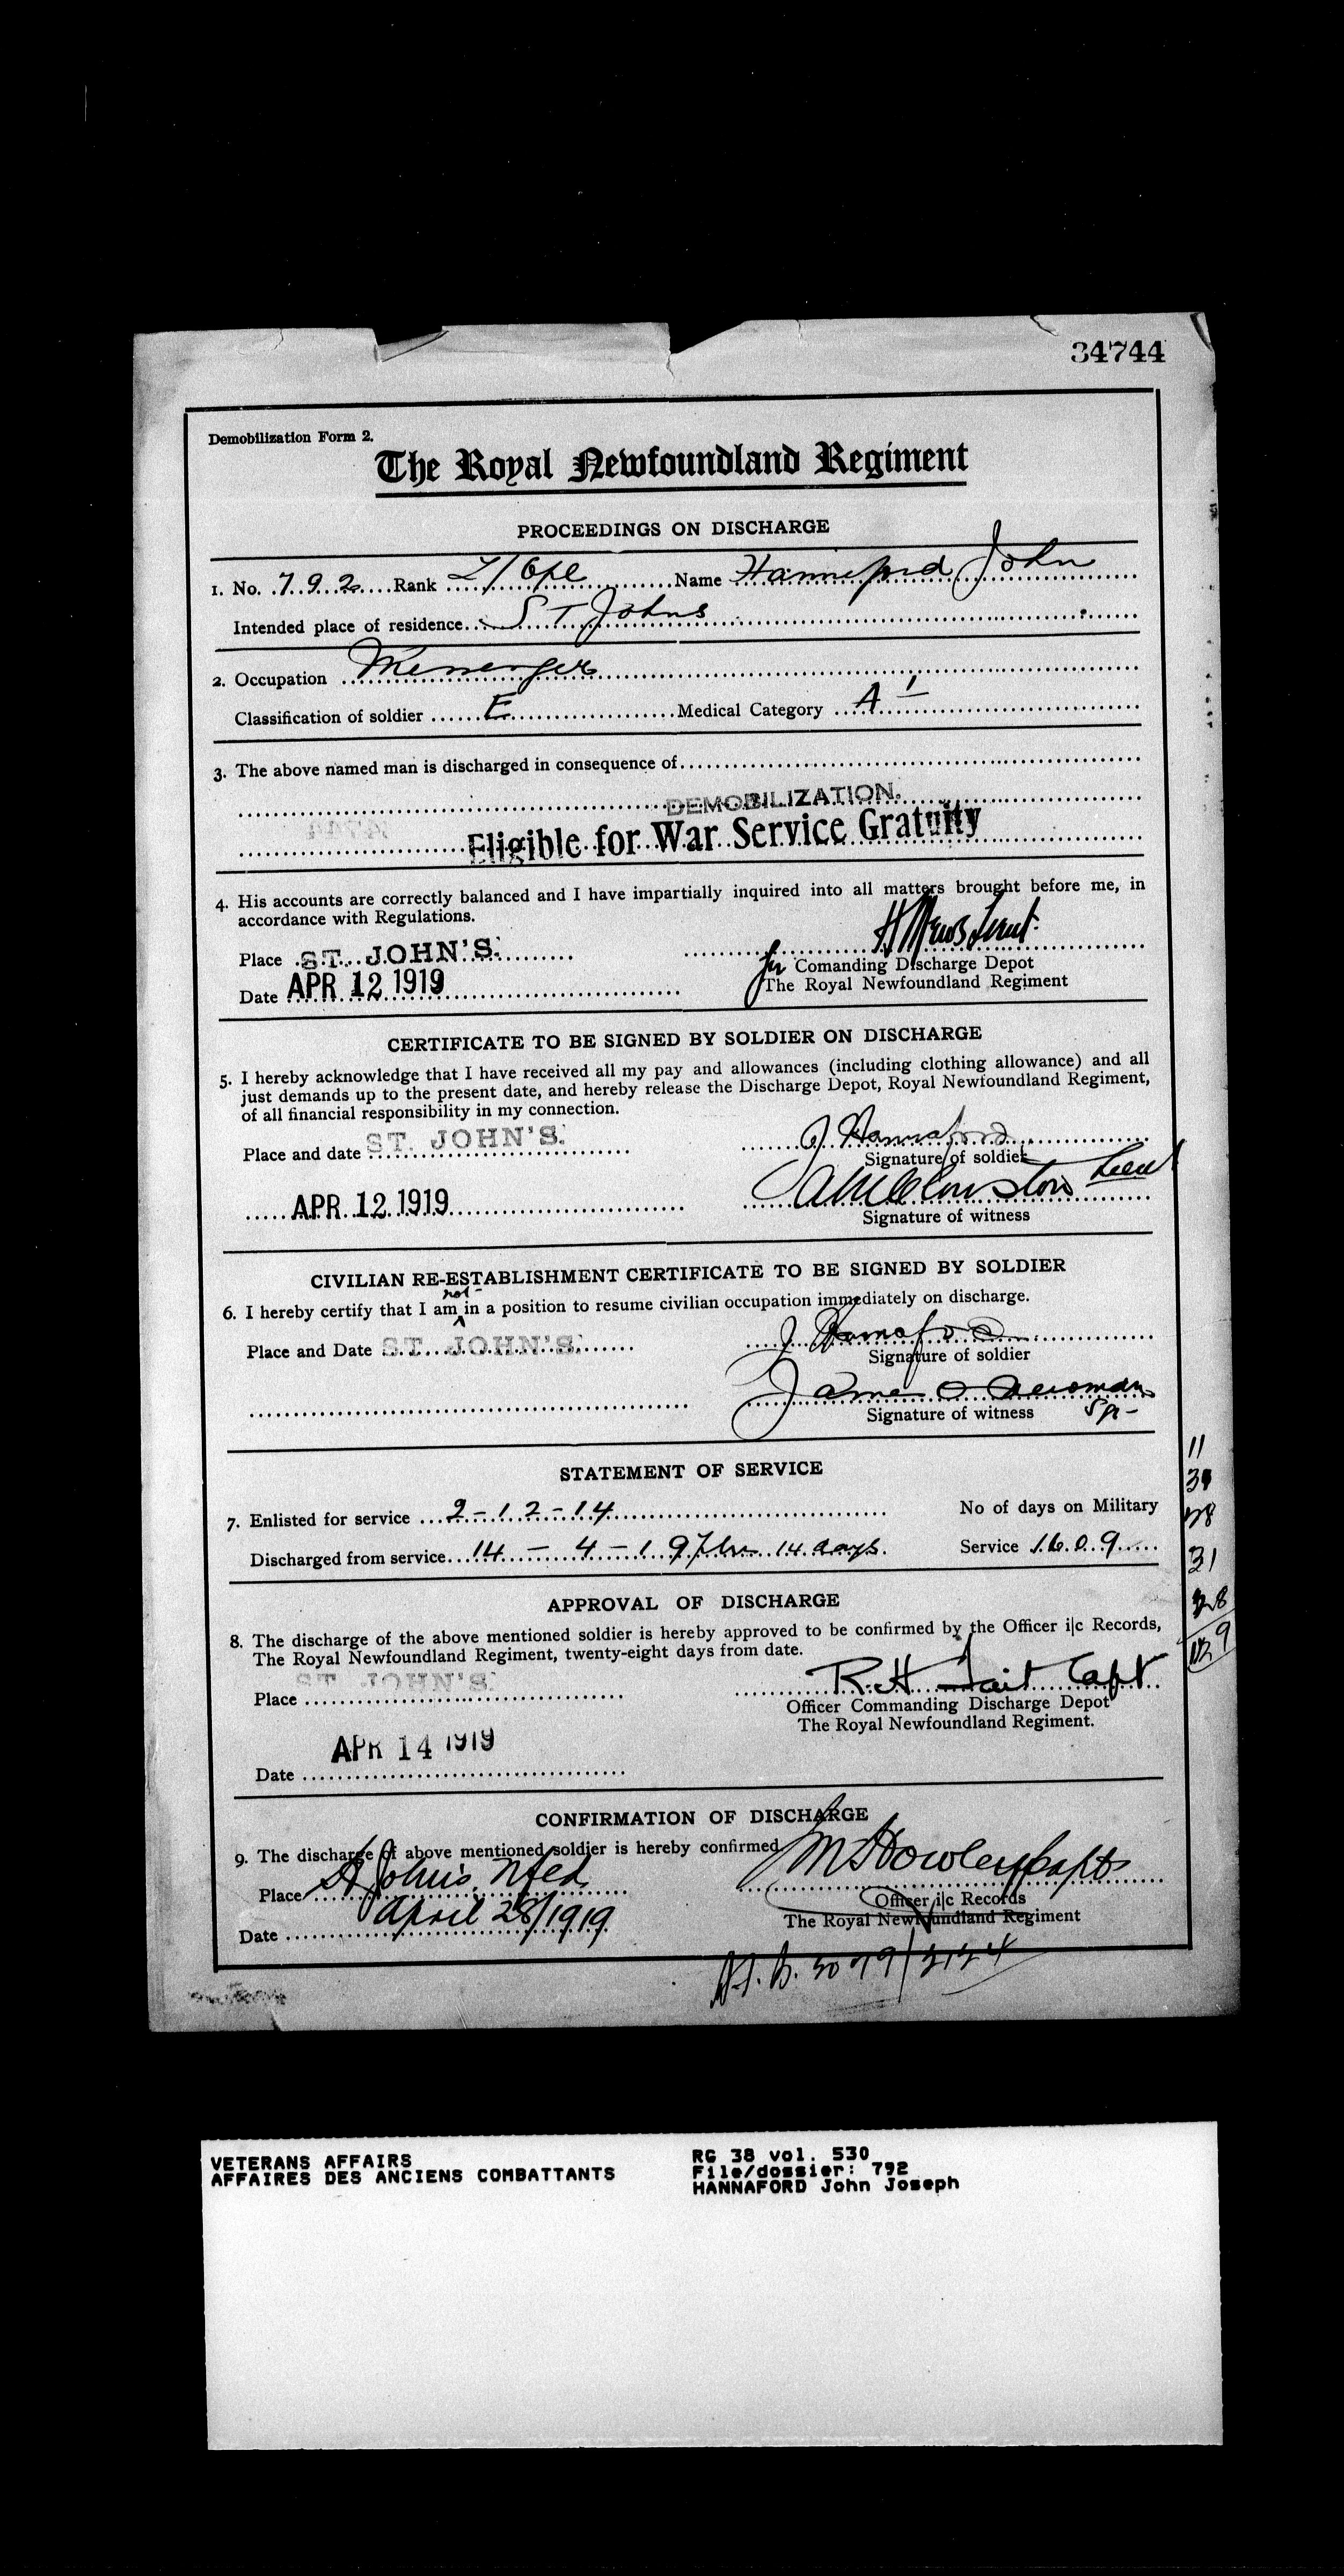 34744
Demobilization Form 2.
The Royal Newfoundland Regiment
PROCEEDINGS ON DISCHARGE
1. No. 792 Rank L/Cpl Name Hanneford John
Intended place of residence St Johns
2. Occupation Messenger
Classification of soldier E Medical Category A 1
3. The above named man is discharged in consequence of
DEMOBILIZATION.
Eligible for War Service Gratuity
4. His accounts are correctly balanced and I have impartially inquired into all matters brought before me, in
accordance with Regulations.
Place ST. JOHN'S. H Mews Lieut.
for Comanding Discharge Depot
Date APR 12 1919 The Royal Newfoundland Regiment
CERTIFICATE TO BE SIGNED BY SOLDIER ON DISCHARGE
5. I hereby acknowledge that I have received all my pay and allowances (including clothing allowance) and all
just demands up to the present date, and hereby release the Discharge Depot, Royal Newfoundland Regiment,
of all financial responsibility in my connection.
Place and date ST. JOHN'S. J Hannaford
Signature of soldier
APR 12 1919 Lieut
Signature of witness
CIVILIAN RE-ESTABLISHMENT CERTIFICATE TO BE SIGNED BY SOLDIER
not
6. I hereby certify that I am in a position to resume civilian occupation immediately on discharge.
Place and Date ST. JOHN'S. J Hannaford
Signature of soldier
James Newman
Signature of witness
STATEMENT OF SERVICE
7. Enlisted for service 2-12-14 No of days on Military
Discharged from service 14-4-19 Plus 14 days. Service 1609
11
31
28
31
28
129
APPROVAL OF DISCHARGE
8. The discharge of the above mentioned soldier is hereby approved to be confirmed by the Officer i|c Records,
The Royal Newfoundland Regiment, twenty-eight days from date.
Place ST. JOHN'S. R.H Tait Capt
Officer Commanding Discharge Depot
The Royal Newfoundland Regiment.
Date APR 14 1919
CONFIRMATION OF DISCHARGE
9. The discharge of above mentioned soldier is hereby confirmed
Place St John's, Nfld M Howley Capt
Officer i|c Records
The Royal Newfoundland Regiment
Date April 28/1919
VETERANS AFFAIRS
AFFAIRES DES ANCIENS COMBATTANTS
RG 38 vol. 530
File/dossier: 792
HANNAFORD John Joseph